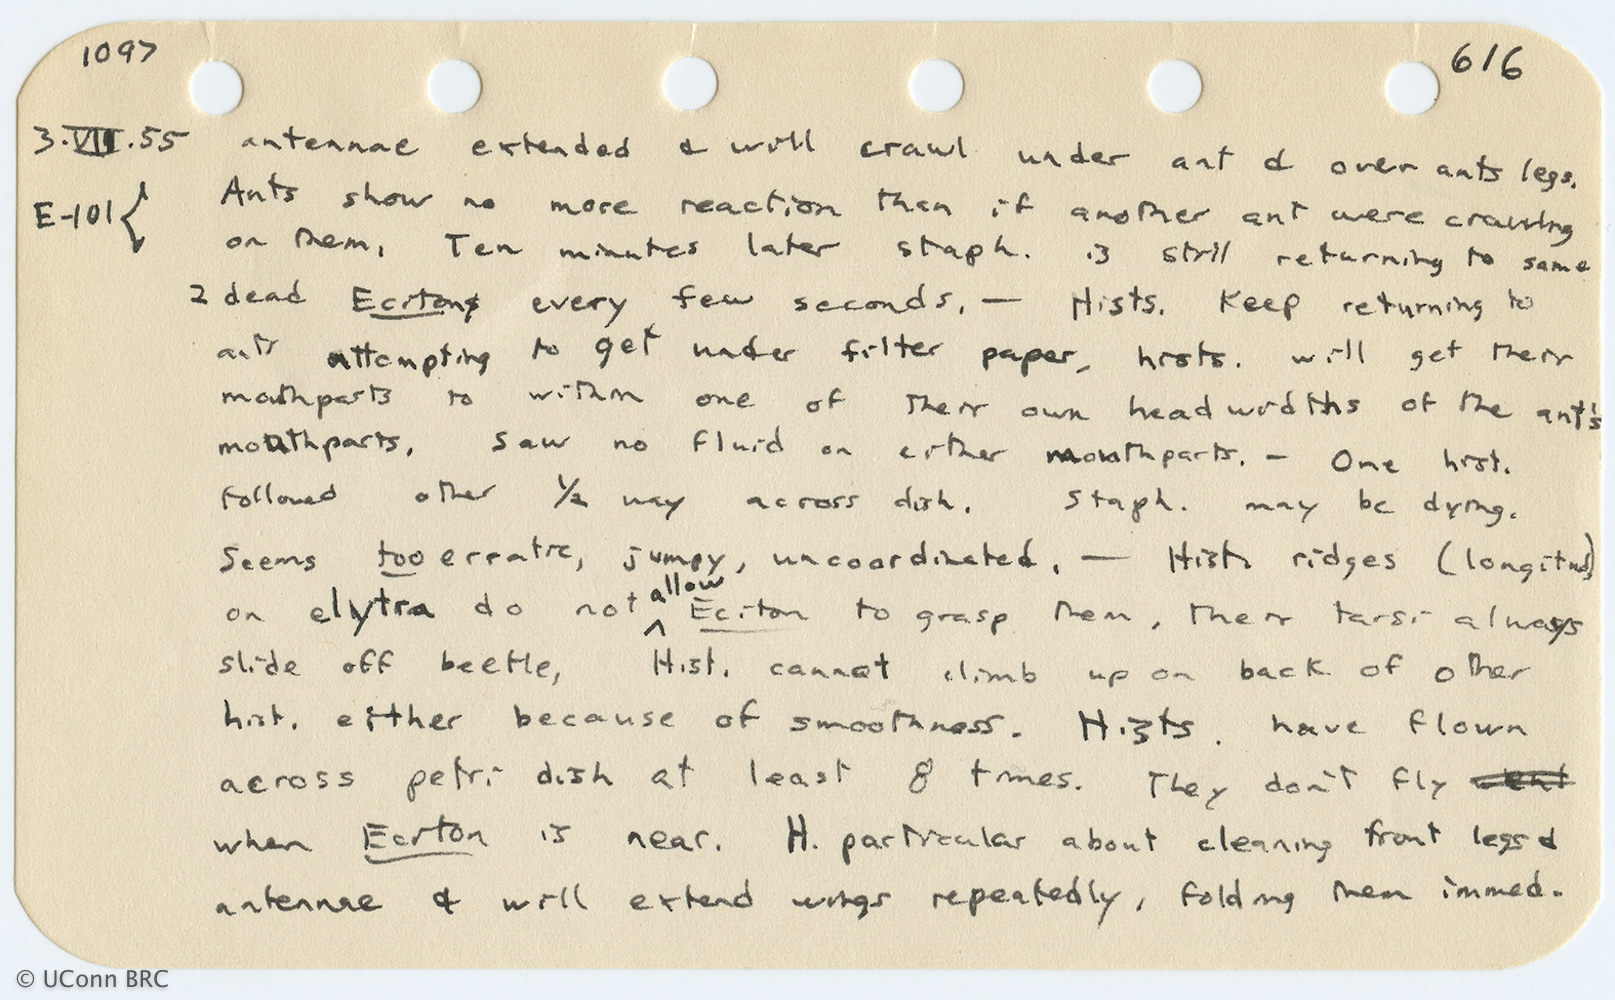 1097
616
3.VII.55 antennae extended & will crawl under ant & over ants legs.
E-101{ Ants show no more reaction than if another ant were crawling
on them. Ten minutes later staph. is still returning to same
2 dead Ecitons every few seconds. — Hists. Keep returning to
ants attempting to get under filter paper, hists. will get their
mouthparts to within one of their own head widths of the ant's
mouthparts. Saw no fluid on either mouthparts. — One hist.
followed other 1/2 way across dish. Staph. may be dying.
Seems too erratic, jumpy, uncoordinated. — Hists ridges (longitud)
on elytra do not allow Eciton to grasp them, their tarsi always
slide off beetle, Hist. cannot climb up on back of other
hist. either because of smoothness. Hists. have flown
across petri dish at least 8 times. They don't fly
when Eciton is near. H. particular about cleaning front legs &
antennae & will extend wings repeatedly, folding them immed.
© UConn BRC